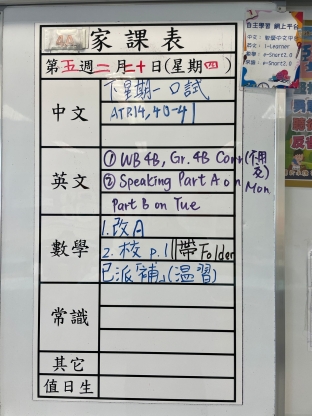 家課表
第五週二月二十日(星期四)
中文
下星期一口試
ATR14, 40-41
英文
① WB 4B, Gr. 4B Corr (不用交)
② Speaking Part A on Mon
Part B on Tue
數學
1. 改A
2. 校 p.1 帶Folder
已派「補」(溫習)
常識
其它
值日生
自主學習 網上平台
i-Learner
e-Smart2.0
e-Smart2.0